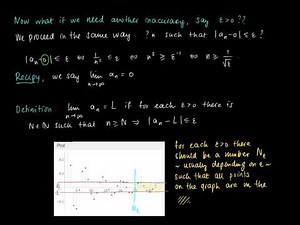 Now what if we need another inaccuracy, say ε>0 ??
We proceed in the same way: ? n such that |aₙ-0| ≤ ε ?
|aₙ-0| ≤ ε ⇔ 1/n² ≤ ε ⇔ n² ≥ ε⁻¹ ⇔ n ≥ 1/√ε
Recap, we say lim n→∞ aₙ = 0
Definition. lim n→∞ aₙ = L if for each ε>0 there is
N ∈ ℕ such that n ≥ N ⇒ |aₙ-L| ≤ ε
Plot
for each ε>0 there
should be a number N_ε
- usually depending on ε -
such that all points
on the graph are in the
N_ε